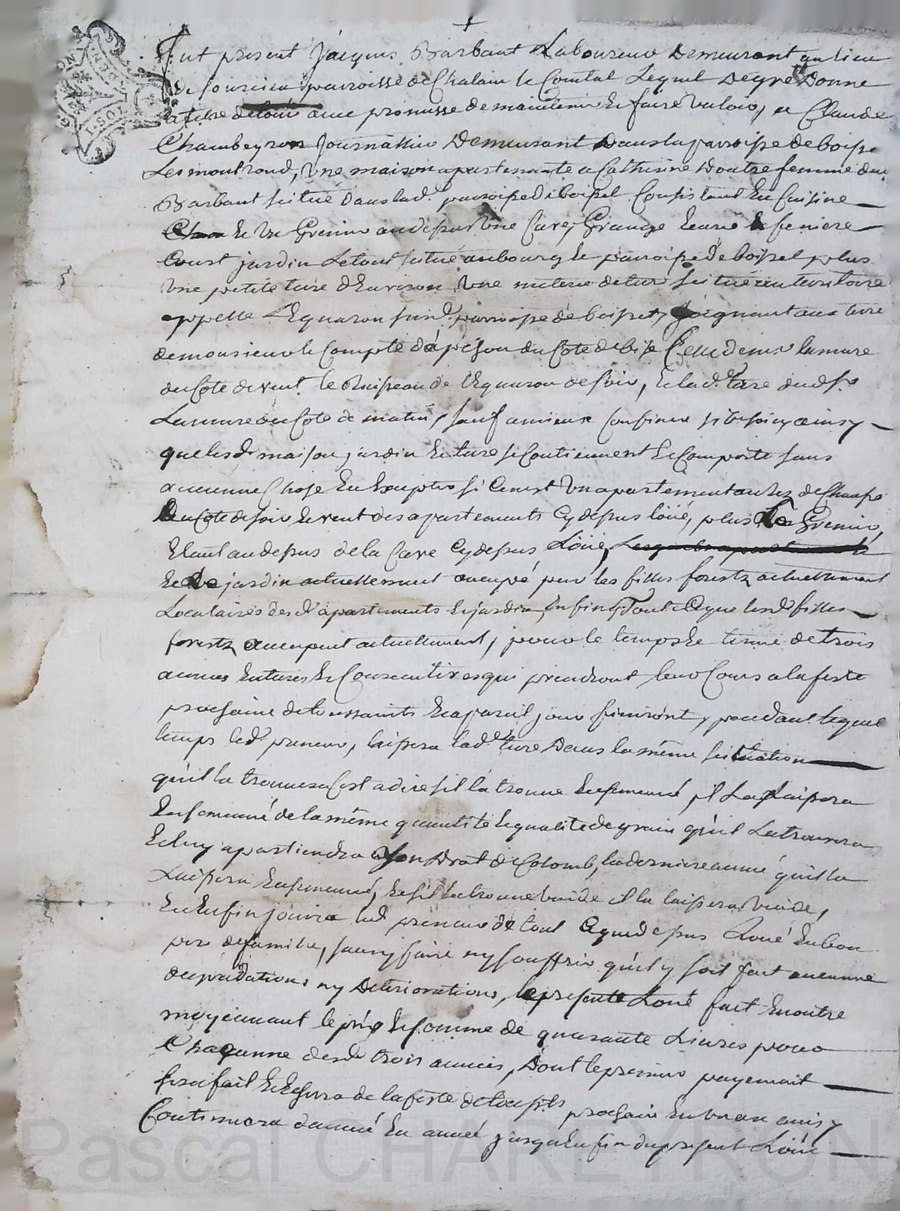 Fut present Jacques Barbant Laboureur Demeurant au lieu
de sourcieu parroisse de Chalain le Comtal Lequel De gre Donne
a titre de loüé avec promesse de maintenir et faire valoir, a Claude
Chambeyron Journallier Demeurant Dans la parroisse de boisset
Les montrond, Une maison apartenante a Catherine Doutre femme du
Barbant scitué dans lad. paroisse de boisset Consistant En Cuisine
Et Un Grenier au dessus Une Cave, Grange Ecurie & feniere
Court jardin Le tout scitué au bourg et paroisse de boisset plus
Une petite terre d'Environ Une meterée de terre scituée en territoire
appellé L'Eguaron susd. parroisse de boisset, joignant aux terre
de monsieur le Compte du Coté de bise Celle de mr lamure
du Coté de vent le Ruisseau de l'Eguaron de soir, Et lad. terre dud. sr
Lamure du Coté de matin, sauf a mieux Confiner ainsy
que lesd. maison jardin Et terre se Contiennent Et Comporte sans
aucunne Chose En Excepter si Cenest Un apartement au rez de Chaussé
Du Coté de soir Et vent des apartements Cy dessus loüé, plus Le Grenier
Etant au dessus de la Cave Cy dessus Loüé,
Et Le jardin actuellement occupé par les filles forestz actuellement
Locataires desd. apartements Et jardin, Enfin Tout Ce que lesd. filles
forestz occupent actuellement, pour le temps Et terme de trois
années Entieres Et Consecutives qui prendront leur Cours a la feste
prochaine de toussaints Et a pareil jour finiront, pendant lequel
temps led. preneur, laissera lad. terre Dans la même scituation
qu'il la trouvera C'est a dire s'il la trouve Ensemencé, il La Laissera
Ensemencé de la même quantité Et qualité de grain qu'il La trouvera
Et luy apartiendra son Droit de Colomb, la derniere année qu'il la
Laissera Ensemencé, Et s'il la trouve vuide il la laissera vuide,
Et Enfin jouira led. preneur de tout Ce que dessus Loué En bon
pere de famille, sans y faire ny souffrir qu'il y soit fait aucunne
degradations ny Deteriorations, le present Loué fait En outre
moyennant le prix Et somme de quarante Livres pour
Chaqunne desd. trois années, Dont le premier payement
sera fait Et Echera de la feste de toussts prochaine En un an ainsy
Continuera d'année En année jusqu'En fin du present Loüé
Pascal CHAREYRON